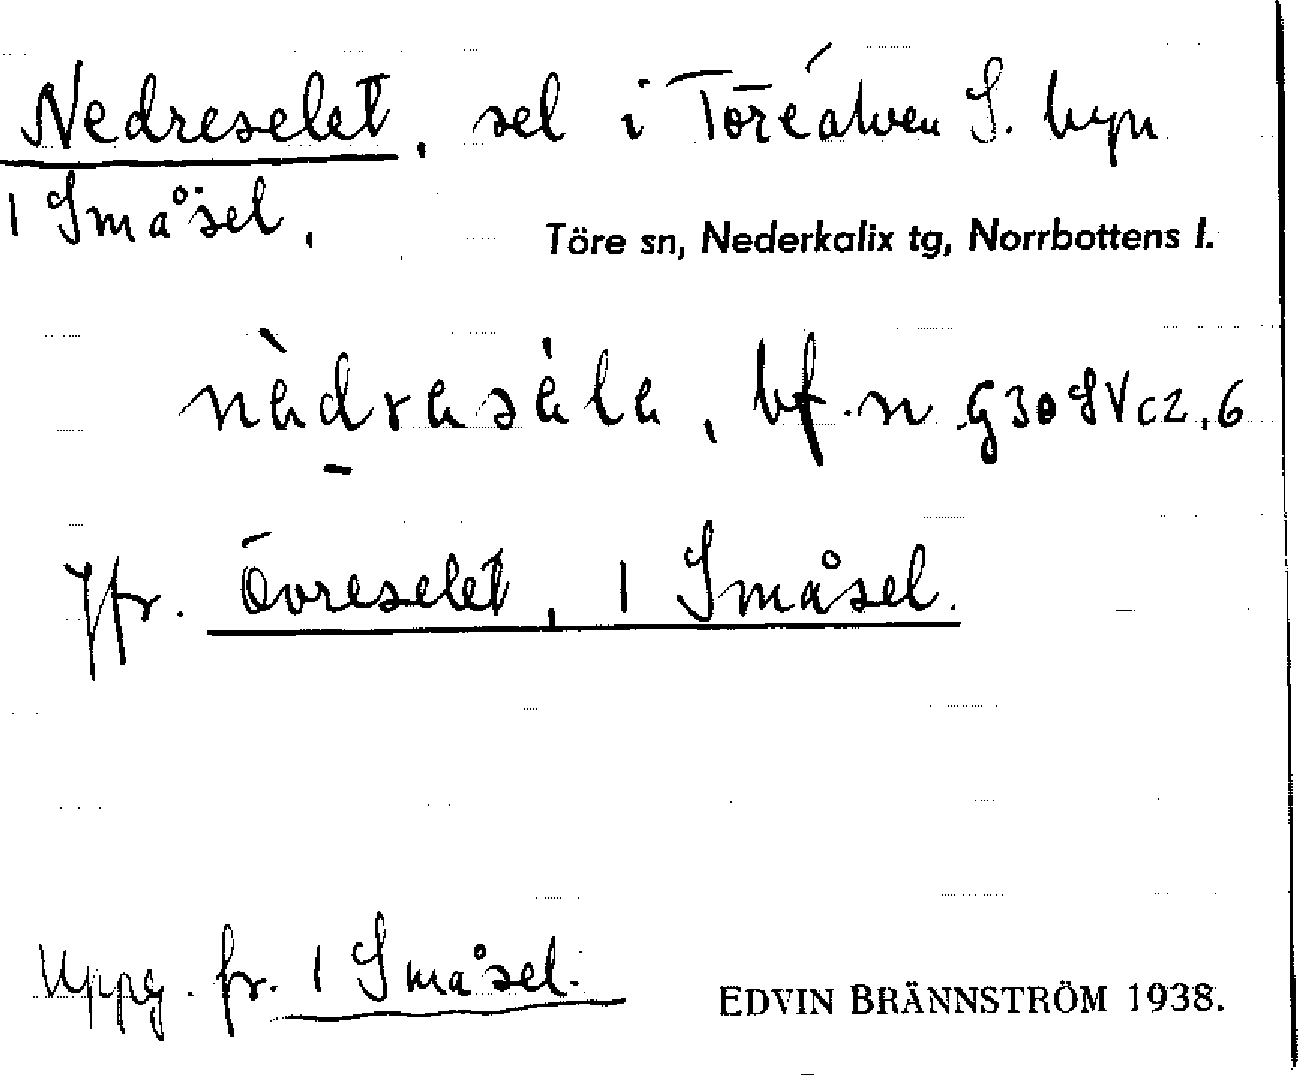 Nedreselet, sel i Töreälven S. byn
1 Småsel.
Töre sn, Nederkalix tg, Norrbottens l.
bf. n G30SVc2,6
Jfr. Övreselet, 1 Småsel.
Uppg. fr. 1 Småsel.
EDVIN BRÄNNSTRÖM 1938.